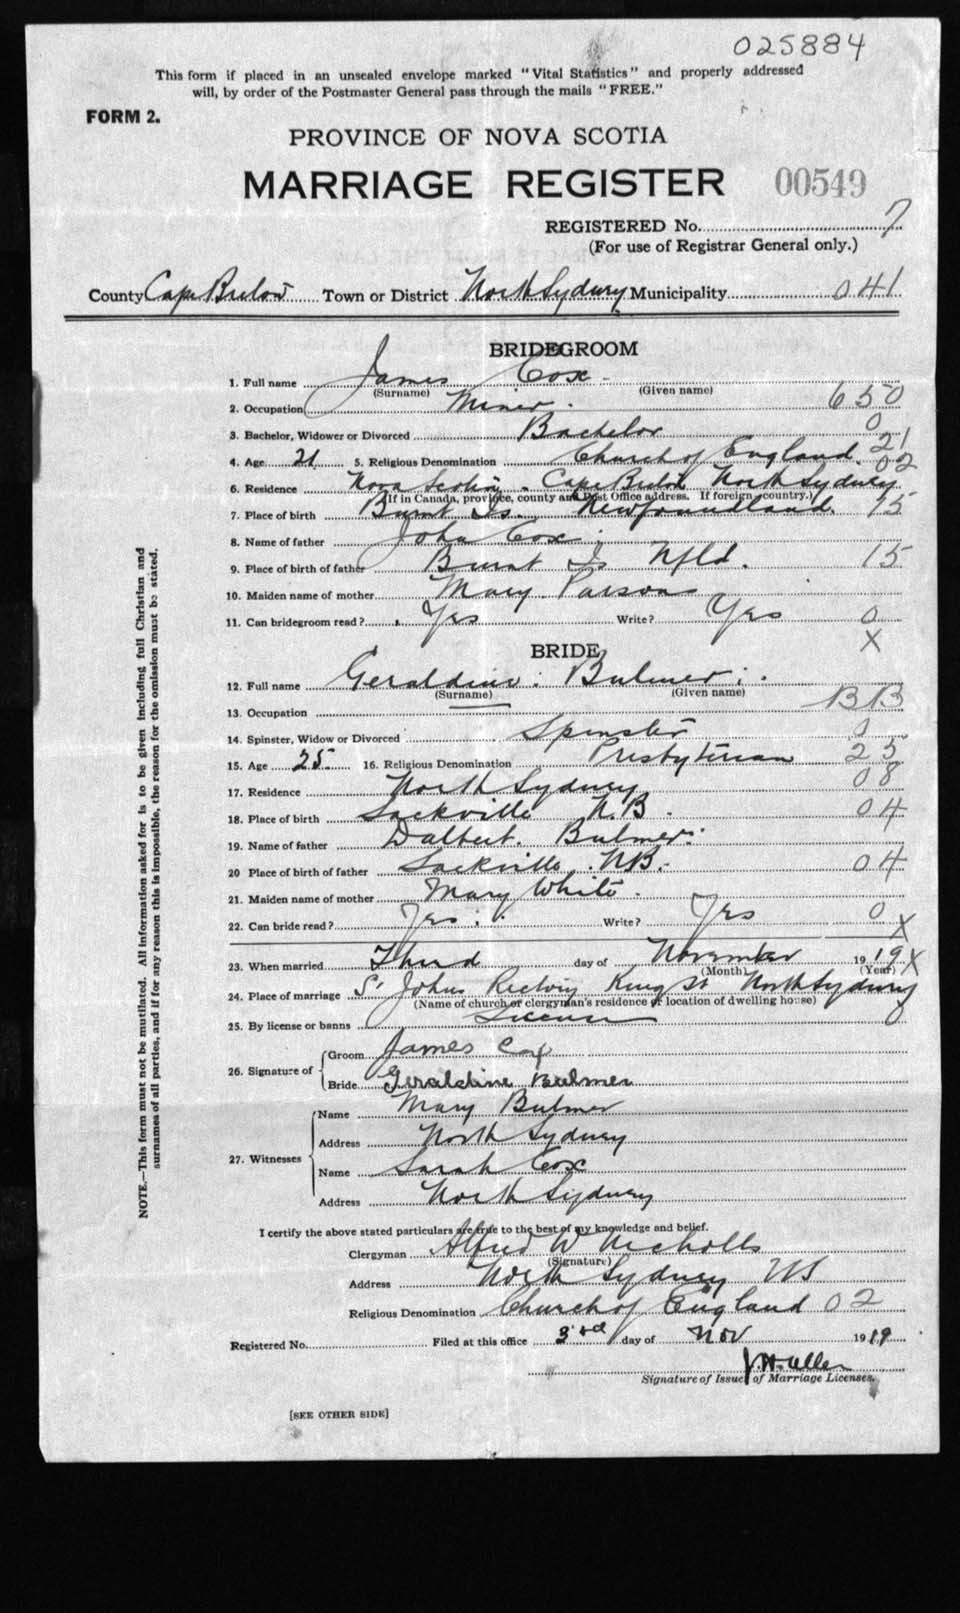 025884
This form if placed in an unsealed envelope marked "Vital Statistics" and properly addressed
will, by order of the Postmaster General pass through the mails "FREE."
FORM 2.
PROVINCE OF NOVA SCOTIA
MARRIAGE REGISTER 00549
REGISTERED No. 7
(For use of Registrar General only.)
County Cape Breton Town or District North Sydney Municipality 041
BRIDEGROOM
1. Full name James Cox
(Surname) (Given name)
2. Occupation Miner. 650
3. Bachelor, Widower or Divorced Bachelor 0
4. Age 21 5. Religious Denomination Church of England. 21
02
6. Residence Nova Scotia. Cape Breton North Sydney
(If in Canada, province, county and Post Office address. If foreign country.)
7. Place of birth Burnt Is. Newfoundland. 15
8. Name of father John Cox
9. Place of birth of father Burnt Is Nfld. 15
10. Maiden name of mother Mary Parsons
11. Can bridegroom read? Yes Write? Yes 0
X
BRIDE
12. Full name Geraldine Bulmer
(Surname) (Given name)
13. Occupation
14. Spinster, Widow or Divorced Spinster 0
15. Age 25 16. Religious Denomination Presbyterian 25
17. Residence North Sydney 08
18. Place of birth Sackville N.B. 04
19. Name of father Dalbert. Bulmer
20 Place of birth of father Sackville NB. 04
21. Maiden name of mother Mary White.
22. Can bride read? Yes Write? Yes 0
X
23. When married Third day of November 1919 X
(Month) (Year)
24. Place of marriage St Johns Rectory King St North Sydney
(Name of church or clergyman's residence or location of dwelling house)
25. By license or banns License
26. Signature of Groom James Cox
Bride Geraldine Bulmer
27. Witnesses Name Mary Bulmer
Address North Sydney
Name Sarah Cox
Address North Sydney
I certify the above stated particulars are true to the best of my knowledge and belief.
Clergyman Alfred W Nicholls
(Signature)
Address North Sydney NS
Religious Denomination Church of England 02
Registered No. Filed at this office 3rd day of Nov 1919
Signature of Issuer of Marriage Licenses.
[SEE OTHER SIDE]
NOTE.—This form must not be mutilated. All information asked for is to be given including full Christian and
surnames of all parties, and if for any reason this is impossible, the reason for the omission must be stated.